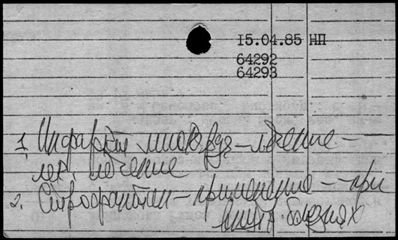 15.04.85 НП
64292
64293
1. Инфаркт миокарда - лечение -
лек. лечение
2. Строфантин - применение - при
болезнях